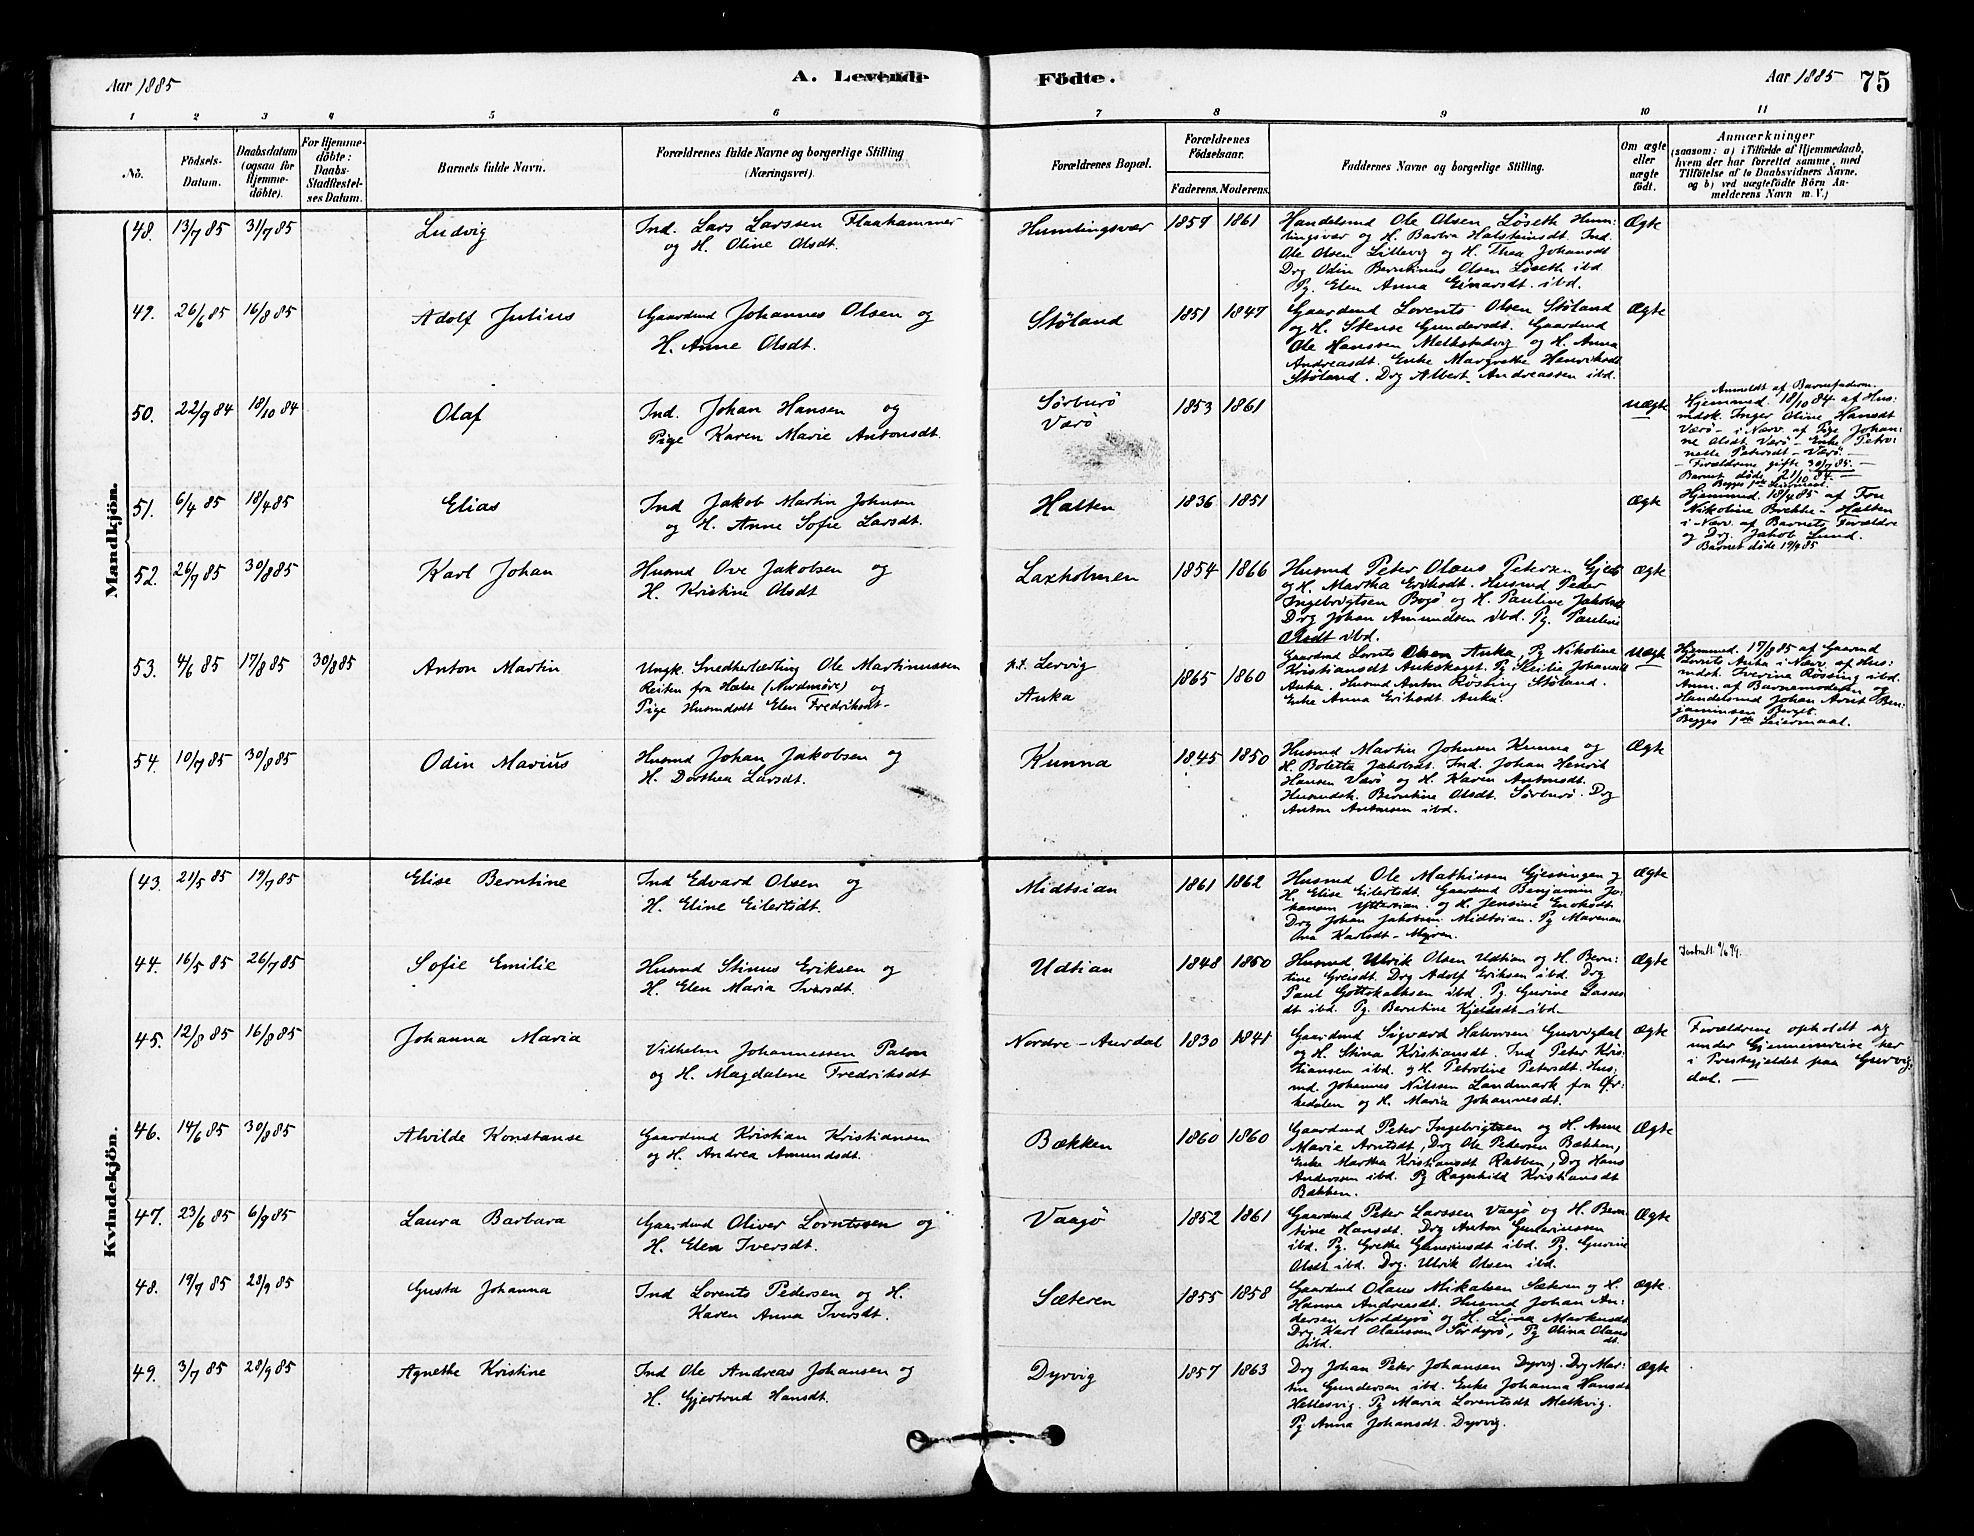 Aar 1885
A. Levende
Födte.
Aar 1885
75
1 2 3 4 5 6 7 8 9 10 11
No.
Födsels-
Datum.
Daabsdatum
(ogsaa for
Hjemme-
döbte).
For Hjemme-
döbte:
Daabs-
Stadfæstel-
ses Datum.
Barnets fulde Navn.
Forældrenes fulde Navne og borgerlige Stilling
(Næringsvei).
Forældrenes Bopæl.
Forældrenes
Födselsaar.
Faderens. Moderens.
Faddernes Navne og borgerlige Stilling.
Om ægte
eller
uægte
födt.
Anmærkninger
(saasom: a) i Tilfælde af Hjemmedaab,
hvem der har forrettet samme, med
Tilföielse af to Daabsvidners Navne,
og b) ved uægtefödte Börn An-
melderens Navn m. V.)
Mandkjön.
48. 13/7 85 31/7 85 Ludvig
Ind. Lars Larssen Flaahammer
og H. Oline Olsdt.
Humlingsvær 1857 1861
Handelsmd Ole Olsen Løseth Hum-
lingsvær og H. Barbra Halsteinsdt. Ind.
Ole Olsen Lillevig og H. Thea Johansdt
Drg Odin Berntinus Olsen Løseth ibd.
Pg. Elen Anna Einarsdt. ibd.
Ægte
49. 26/6 85 16/8 85 Adolf Julius
Gaardmd Johannes Olsen og
H. Anne Olsdt.
Støland 1851 1847
Gaardmd Lorents Olsen Støland
og H. Stense Gundersdt. Gaardmd
Ole Hanssen Melkstadvig og H. Anna
Andreasdt. Enke Margrethe Henriksdt
Støland. Drg Albert Andreassen ibd.
Ægte
50. 22/9 84 18/10 84 Olaf
Ind. Johan Hansen og
Pige Karen Marie Antonsdt.
Sörburö
Værö
1853 1861
uægte
Anmeldt af Barnefaderen.
Hjemmed. 18/10 84 af Hus-
mdsk. Inger Oline Hansdt
Værö - i Nærv. af Pige Johan-
ne Olsdt Værö - Enke Petro-
nelle Petersdt - Værö -
- Forældrene gifte 30/7 85. -
Barnet døde 21/10 84. -
Begges 1ste Leiermaal.
51. 6/4 85 18/4 85 Elias
Ind Jakob Martin Johnsen
og H. Anne Sofie Larsdt.
Halten 1836 1851
Ægte
Hjemmed. 18/4 85 af Fru
Nikoline Brekke - Halten
i Nærv. af Barnets Forældre
og Drg. Jakob Lund.
Barnet døde 19/4 85
52. 26/7 85 30/8 85 Karl Johan
Husmd Ove Jakobsen og
H. Kristine Olsdt
Laxholmen 1854 1866
Husmd Peter Olaus Petersen
og H. Martha Eriksdt. Husmd Peder
Ingebrigtsen Bogö og H. Pauline Jakobsdt
Drg Johan Amundsen ibd. Pg. Pauline
Olsdt ibd.
Ægte
53. 4/6 85 17/8 85 30/8 85 Anton Martin
Ungk. Snedkerlærling Ole Martinussen
Reiten fra (Nordmöre) og
Pige Husmdsdt Elen Fredriksdt-
p.t. Lervig
Auka
1865 1860
Gaardmd Lornts Olsen Auka, Pg Nikoline
Kristiansdt Aukskaget. Pg Johansdt
Auka. Husmd Anton Røssing Støland.
Enke Anna Eriksdt. Auka.
uægte
Hjemmed. 17/8 85 af Gaarmd
Lornts Auka i Nærv. af Hus-
mdsk. Iverina Røssing ibd.
Anm. af Barnemoderen og
Handelsmd Johan Arnt Ben-
jaminsen Berget.
Begges 1ste Leiermaal.
54. 10/7 85 30/8 85 Odin Marius
Husmd Johan Jakobsen og
H. Dorthea Larsdt.
Kunna 1845 1850
Husmd Martin Johnsen Kunna og
H. Boletta Jakobsdt. Ind. Johan Henrik
Hansen Værö og H. Karen Antonsdt.
Husmdsk. Berntine Olsdt. Sörburö. Drg
Anton Antonsen ibd.
Ægte
Kvindekjön.
43. 21/5 85 19/7 85 Elise Berntine
Ind Edvard Olsen og
H. Eline Eilertsdt.
Midtsian 1861 1862
Husmd Ole Mathissen Gjessingen og
H. Elise Eilertsdt. Gaardmd Benjamin Jo-
hansen Yttersian. og H. Jensine Enoksdt
Drg Johan Jakobsen Midtsian. Pg Marenan
na Karlsdt - Myren.
Ægte
44. 16/5 85 26/7 85 Sofie Emilie
Husmd Stinus Eriksen og
H. Elen Maria Iversdt.
Udtian 1848 1850
Husmd Ulrik Olsen Udtian og H. Bern-
tine Greisdt. Drg Adolf Eriksen ibd. Drg
Paul Gottskalksen ibd. Pg. Gurine
dt ibd. Pg. Berntine Kjeldsdt ibd.
Ægte
9/6 99.
45. 12/8 85 16/8 85 Johanna Maria
Vilhelm Johannessen Palm
og H. Magdalene Fredriksdt
Nordre-Aurdal 1830 1841
Gaardmd Sigvard Halvorsen Gurvigdal
og H. Stina Kristiansdt. Ind Peter Kris-
tiansen ibd. og H. Petroline Petersdt. Hus-
md. Johannes Nilssen Landmark fra Ør-
kedalen og H. Maria Johannesdt.
Ægte
Forældrene opholdt sig
under Gjennemreise her
i Prestegjeldet paa Gurvig-
dal. -
46. 14/6 85 30/8 85 Alvilde Konstanse
Gaardmd Kristian Kristiansen
og H. Andrea Amundsdt.
Bækken 1860 1860
Gaardmd Peter Ingebrigtsen og H. Anne
Maria Arntsdt, Drg Ole Pedersen Bækken,
Enke Martha Kristiansdt Rabben, Drg Hans
Anderssen ibd. Pg Ragnhild Kristiansdt
Bækken.
Ægte
47. 23/6 85 6/9 85 Laura Barbara
Gaardmd Oliver Lorntssen og
H. Elen Iversdt.
Vaagö 1852 1861
Gaardmd Peter Larssen Vaagö og H. Bern-
tine Hansdt. Drg Anton Gunerinussen
ibd. Pg. Grethe Gunerinsdt ibd. Pg. Gurine
Olsdt ibd. Drg. Ulrik Olsen ibd.
Ægte
48. 19/7 85 28/9 85 Gusta Johanna
Ind Lorents Pedersen og H.
Karen Anna Iversdt.
Sæteren 1855 1858
Gaardmd Olaus Mikalsen Sæteren og H.
Hanna Andreasdt. Husmd Johan An-
dersen Norddyrö og H. Lina Markusdt
Drg Karl Olaussen Sördyrö, Pg Olina Olaus
dt. ibd.
Ægte.
49. 3/7 85 28/9 85 Agnethe Kristine
Ind Ole Andreas Johansen og
H. Gjertrud Hansdt.
Dyrvig 1857 1863
Drg Johan Peter Johansen Dyrvig. Drg Mar-
tin Gundersen ibd. Enke Johanna Hansdt
Hellesvig. Pg Maria Lorentsdt Melkvig.
Pg Anna Johansdt. Dyrvig.
Ægte